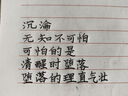 沉淪
无知不可怕
可怕的是
清醒时堕落
堕落的理直气壮